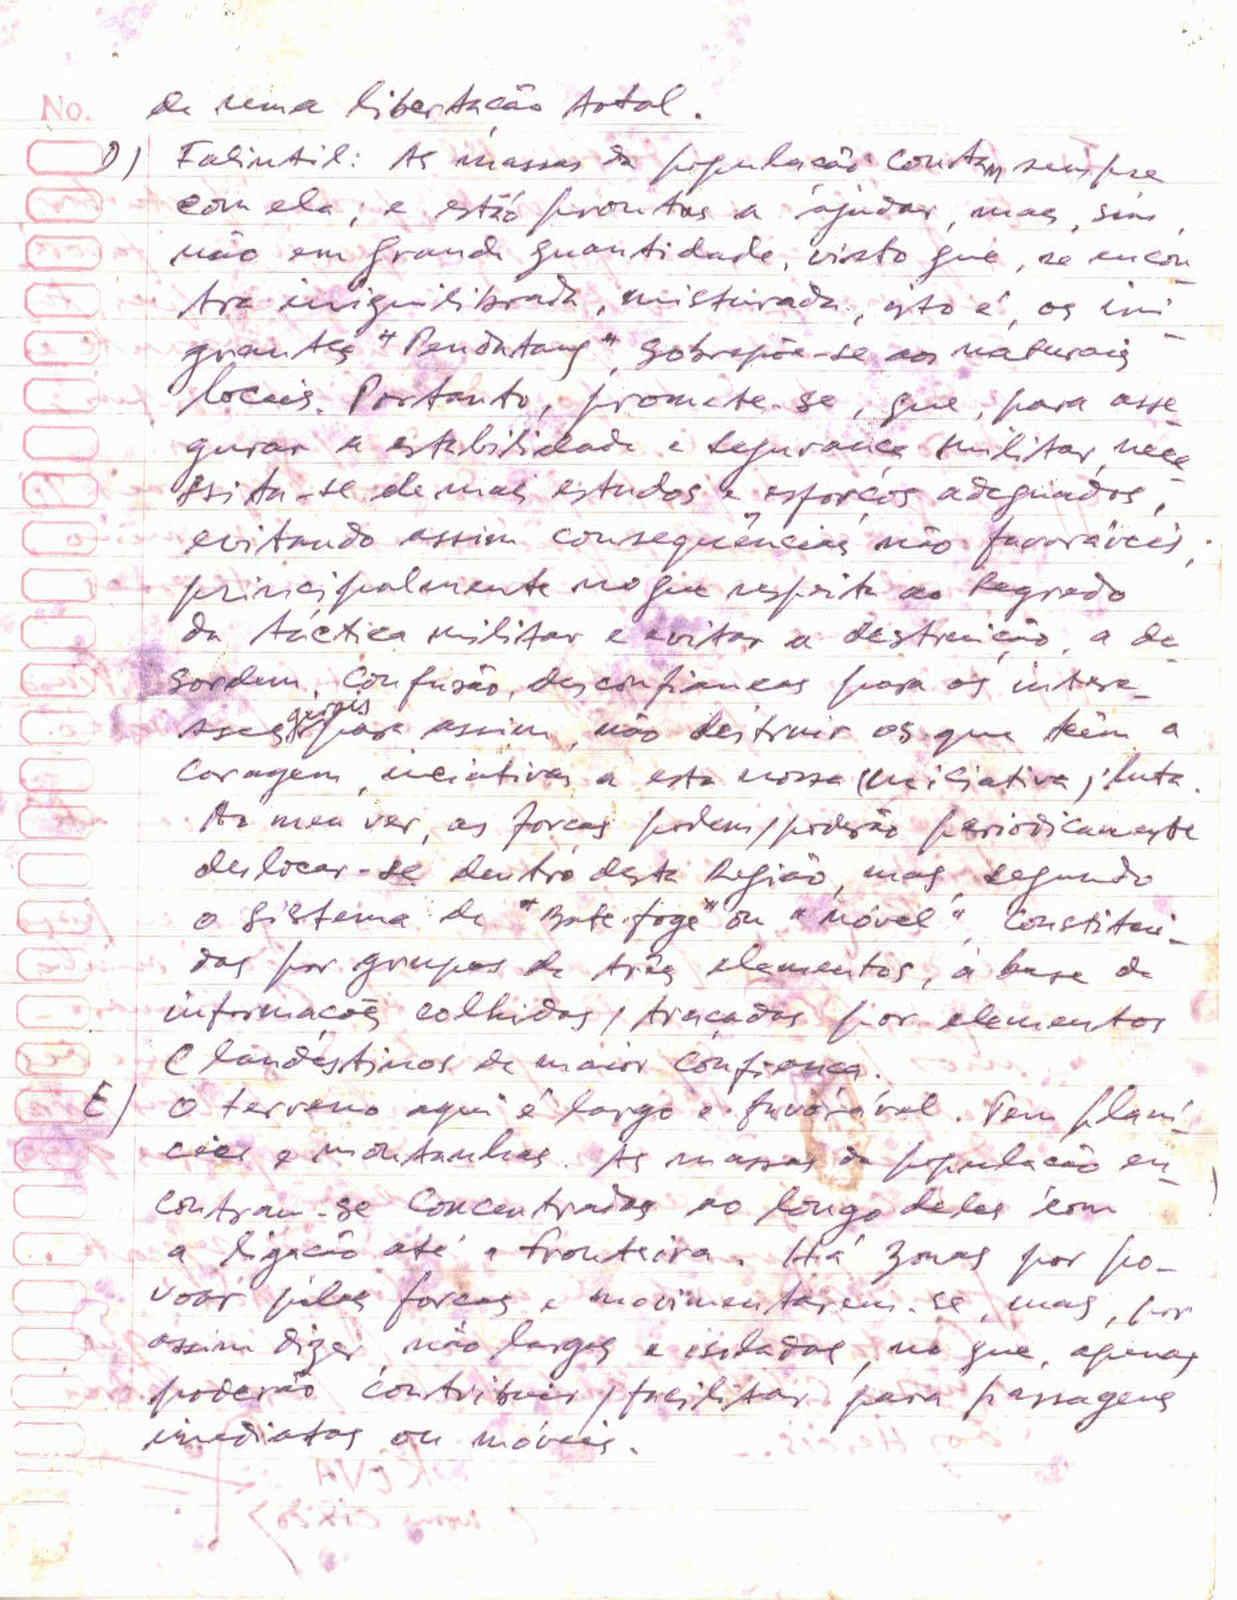 No.
de uma libertação total.
D) Falintil: As massas da população contam sempre
com ela, e estão prontas a ajudar, mas, sim,
não em grande quantidade, visto que, se encon-
tra iniquilibrada, misturada, isto é, os imi-
grantes "Pendatang", sobrepõe-se aos naturais
locais. Portanto, promete-se, que, para asse-
gurar a estabilidade e segurança militar, nece-
ssita-se de mais estudos e esforços adequados,
evitando assim consequências não favoráveis,
principalmente no que respeita ao segredo
da táctica militar e evitar a destruição, a de-
sordem, confusão, desconfianças para os intere-
sses gerais para assim, não destruir os que têm a
coragem, iniciativa, a esta nossa (iniciativa) luta.
Ao meu ver, as forças podem/poderão periodicamente
deslocar-se dentro desta Região, mas, segundo
o sistema de "Bate foge" ou "móvel", constituí-
das por grupos de três elementos, à base de
informações colhidas/traçadas por elementos
Clandestinos de maior confiança.
E) O terreno aqui é largo e favorável. Tem planí-
cies e montanhas. As massas da população en-
contram-se concentradas ao longo delas com
a ligação até a fronteira. Há zonas por po-
voar pelas forças e movimentarem-se, mas, por
assim dizer, não largas e isoladas, no que, apenas
poderão contribuir/facilitar para passagens
imediatas ou móveis.